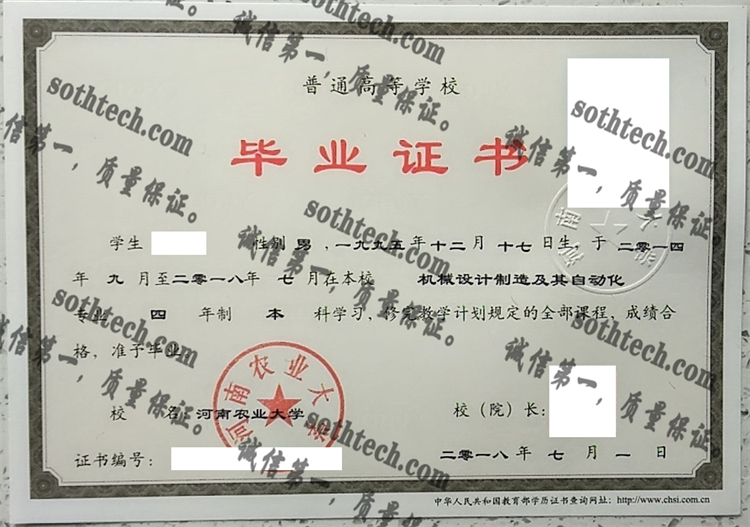 普通高等学校
毕业证书
学生 性别 男 ，一九九五年 十二月 十七日生，于 二零一四
年 九 月至二零一八年 七 月在本校 机械设计制造及其自动化
专业 四 年制 本 科学习，修完教学计划规定的全部课程，成绩合
格，准予毕业
校 名：河南农业大学 校（院）长：
证书编号： 二零一八年 七 月 一 日
中华人民共和国教育部学历证书查询网址：http://www.chsi.com.cn
河南农业大学
sothtech.com
诚信第一，质量保证。
sothtech.com
诚信第一，质量保证。
sothtech.com
诚信第一，质量保证。
sothtech.com
诚信第一，质量保证。
sothtech.com
诚信第一，质量保证。
sothtech.com
诚信第一，质量保证。
sothtech.com
诚信第一，质量保证。
sothtech.com
诚信第一，质量保证。